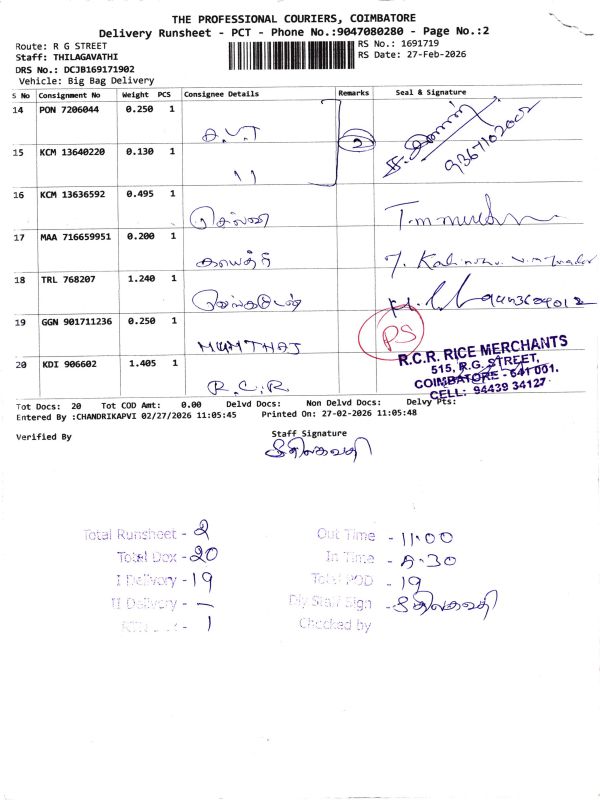 THE PROFESSIONAL COURIERS, COIMBATORE
Delivery Runsheet - PCT - Phone No.:9047080280 - Page No.:2
Route: R G STREET
RS No.: 1691719
Staff: THILAGAVATHI
RS Date: 27-Feb-2026
DRS No.: DCJB169171902
Vehicle: Big Bag Delivery
S No Consignment No Weight PCS Consignee Details Remarks Seal & Signature
14 PON 7206044 0.250 1
2
9367102002
15 KCM 13640220 0.130 1 11
16 KCM 13636592 0.495 1 செல்வி
17 MAA 716659951 0.200 1 காயத்ரி
18 TRL 768207 1.240 1
19 GGN 901711236 0.250 1 MUMTHAJ PS
20 KDI 906602 1.405 1 R.C.R
R.C.R. RICE MERCHANTS
515, R.G. STREET,
COIMBATORE - 641 001.
CELL: 94439 34127
Tot Docs: 20 Tot COD Amt: 0.00 Delvd Docs: Non Delvd Docs: Delvy Pts:
Entered By :CHANDRIKAPVI 02/27/2026 11:05:45 Printed On: 27-02-2026 11:05:48
Verified By
Staff Signature
திலகவதி
Total Runsheet - 2
Out Time - 11.00
Total Dox - 20
In Time - 4.30
I Delivery - 19
Total POD - 19
II Delivery - —
Dly Staff Sign - திலகவதி
- 1
Checked by